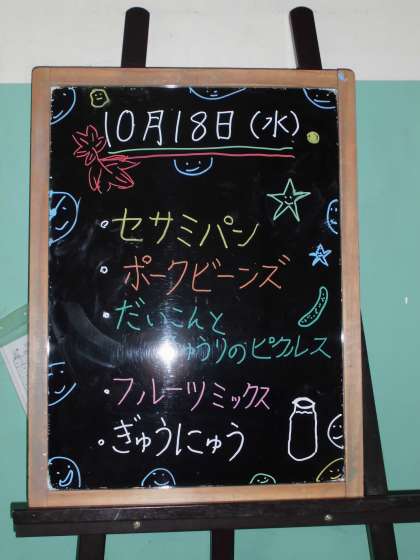 10月18日(水)
・セサミパン
・ポークビーンズ
・だいこんと
きゅうりのピクルス
・フルーツミックス
・ぎゅうにゅう